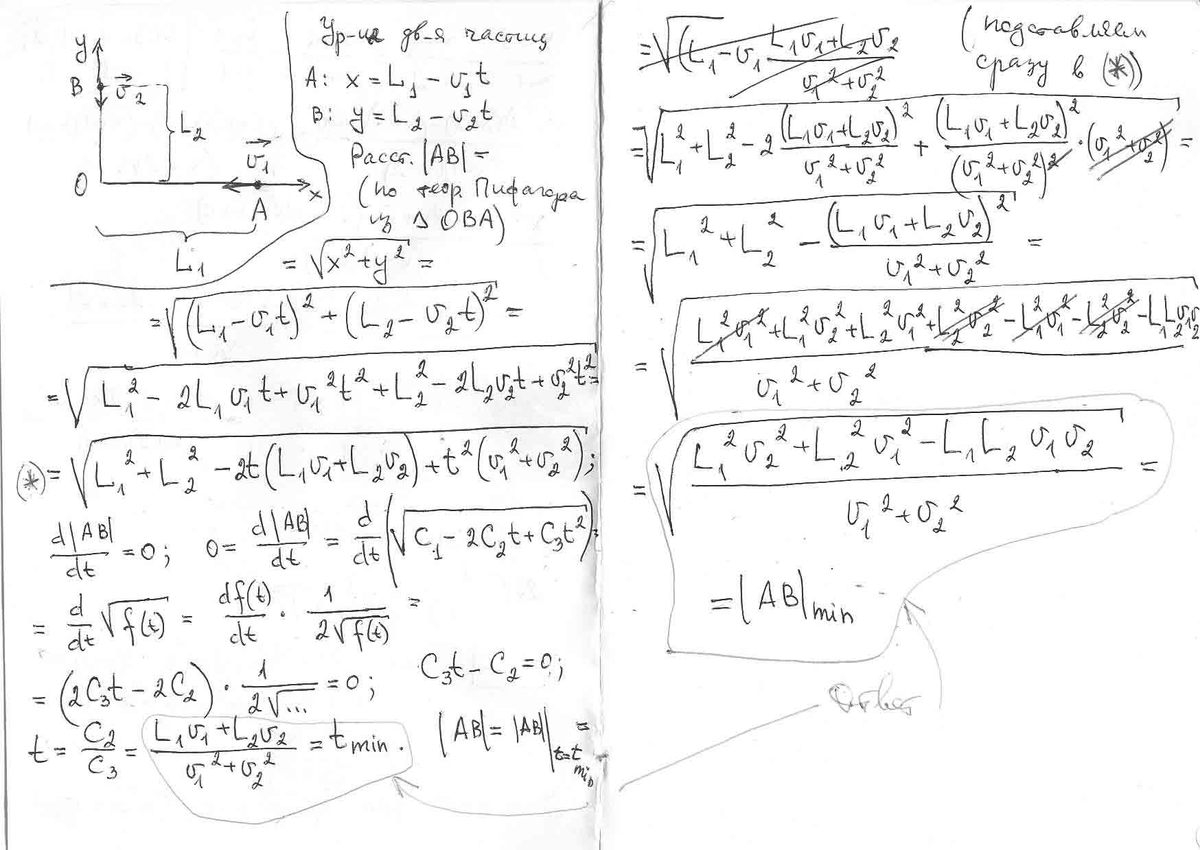 y
B
v⃗₂
L₂
v⃗₁
O
A
x
L₁
Ур-ия дв-я частиц
A: x = L₁ − v₁t
B: y = L₂ − v₂t
Расст. |AB| =
(по теор. Пифагора
из Δ OBA)
= √(x² + y²) =
= √((L₁ − v₁t)² + (L₂ − v₂t)²) =
= √(L₁² − 2L₁v₁t + v₁²t² + L₂² − 2L₂v₂t + v₂²t²) =
(*) = √(L₁² + L₂² − 2t(L₁v₁ + L₂v₂) + t²(v₁² + v₂²));
d|AB|/dt = 0; 0 = d|AB|/dt = d/dt(√(C₁ − 2C₂t + C₃t²)) =
= d/dt √f(t) = df(t)/dt · 1/(2√f(t)) =
= (2C₃t − 2C₂) · 1/(2√...) = 0; C₃t − C₂ = 0;
t = C₂/C₃ = (L₁v₁ + L₂v₂)/(v₁² + v₂²) = t min. |AB| = |AB||t=t min =
= √(L₁ − v₁ (L₁v₁ + L₂v₂)/(v₁² + v₂²)
(подставляем
сразу в (*))
= √(L₁² + L₂² − 2 (L₁v₁ + L₂v₂)²/(v₁² + v₂²) + (L₁v₁ + L₂v₂)²/(v₁² + v₂²)² · (v₁² + v₂²)) =
= √(L₁² + L₂² − (L₁v₁ + L₂v₂)²/(v₁² + v₂²)) =
= √((L₁²v₁² + L₁²v₂² + L₂²v₁² + L₂²v₂² − L₁²v₁² − L₂²v₂² − L₁L₂v₁v₂)/(v₁² + v₂²))
= √((L₁²v₂² + L₂²v₁² − L₁L₂v₁v₂)/(v₁² + v₂²)) =
= |AB|min
Ответ